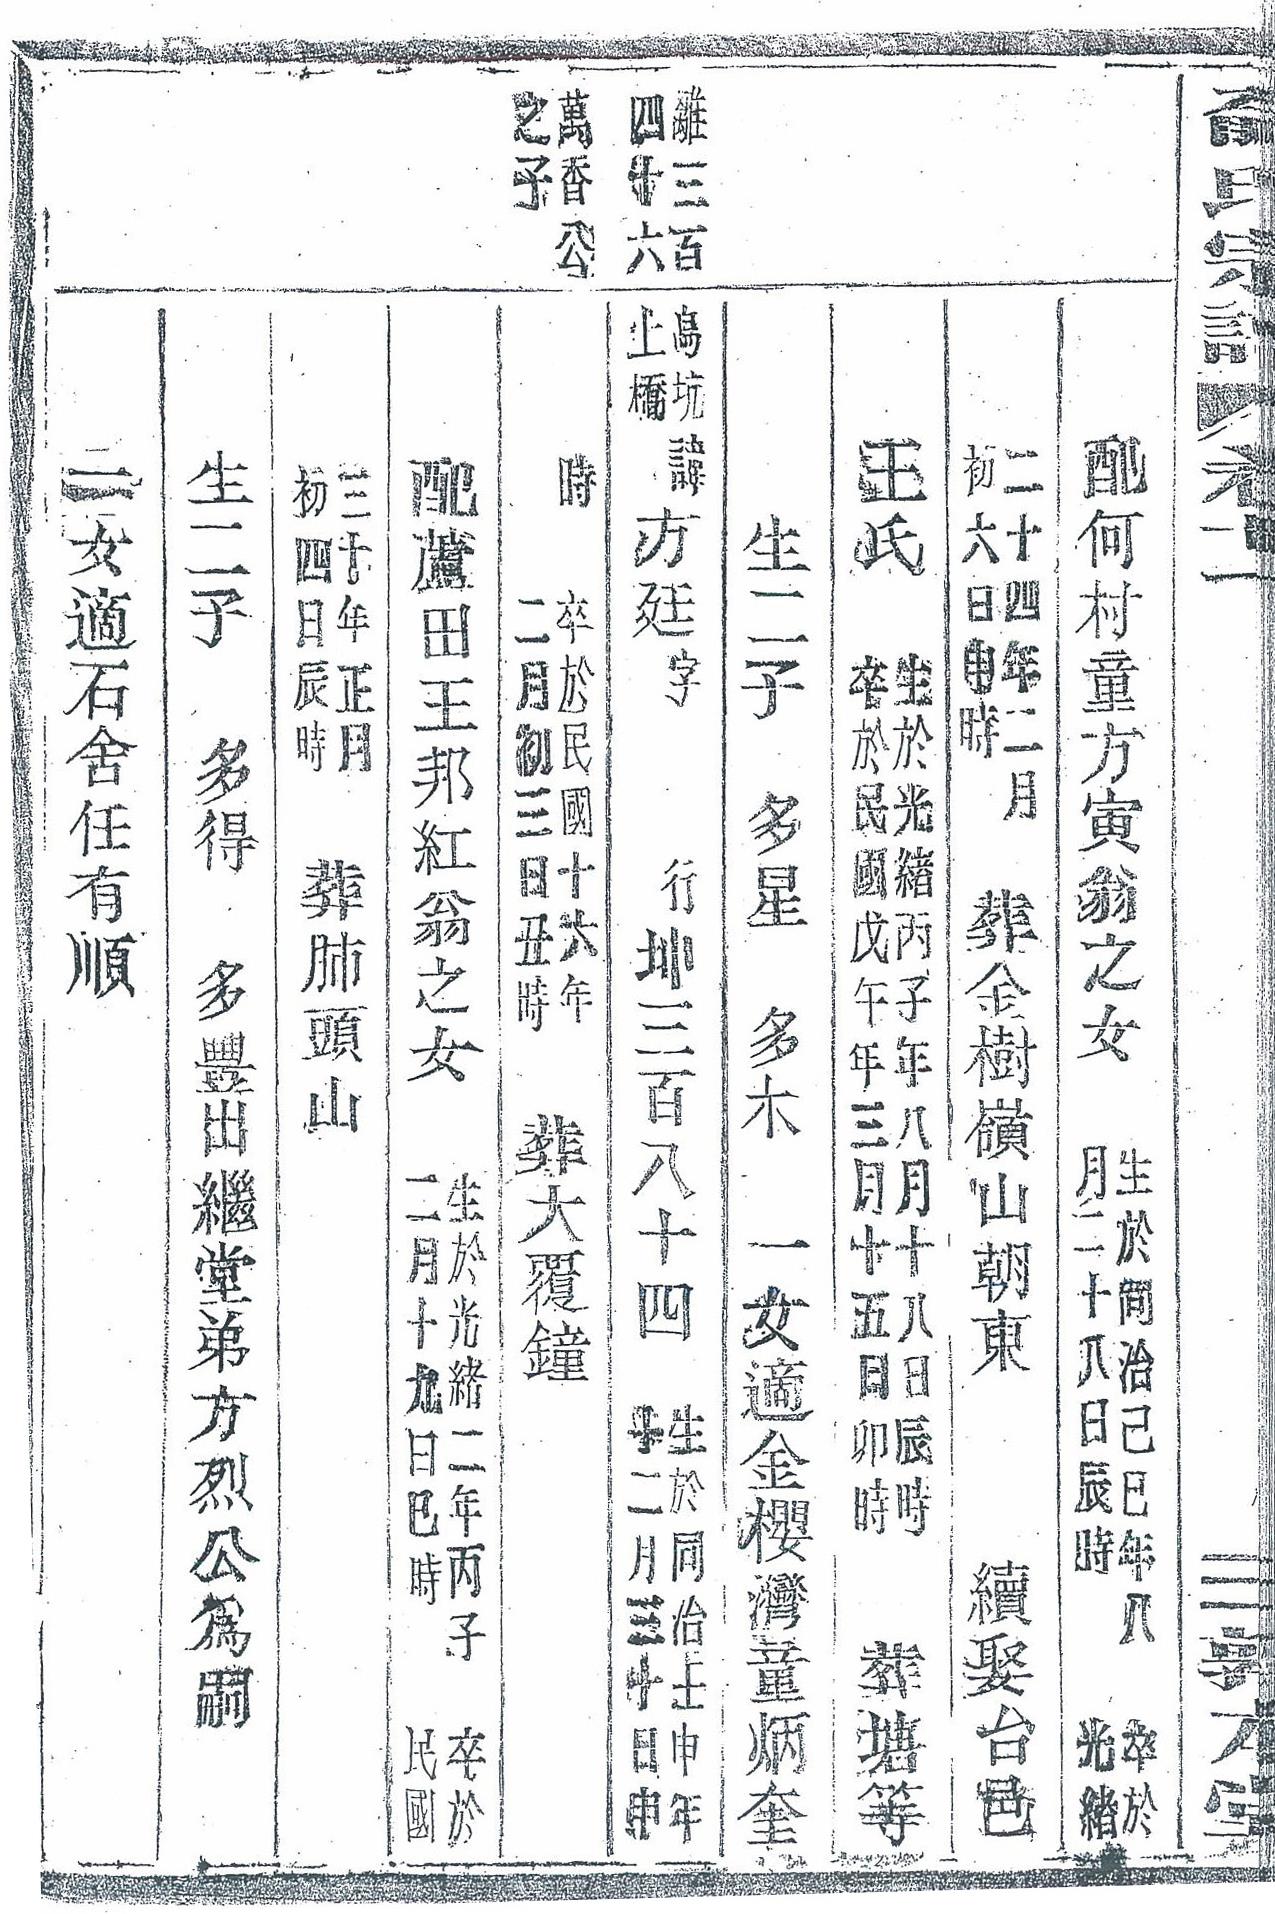 氏宗譜 卷十一
配何村童方寅翁之女 生於同治己巳年八月二十八日辰時 卒於光緒
二十四年二月初六日申時 葬金樹嶺山朝東 續娶台邑
王氏 生於光緒丙子年八月十八日辰時 卒於民國戊午年三月十五日卯時 葬塘等
生二子 多星 多木 一女適金櫻灣童炳奎
雖三百四十六
島坑土橋 諱方廷字 行坤三百八十四 生於同治壬申年十二月三十日申
萬香公之子
時 卒於民國十六年二月初三日丑時 葬大覆鐘
配蘆田王邦紅翁之女 生於光緒二年丙子二月十九日巳時 卒於民國
三十年正月初四日辰時 葬肺頭山
生二子 多得 多豐出繼堂弟方烈公為嗣
二女適石舍任有順